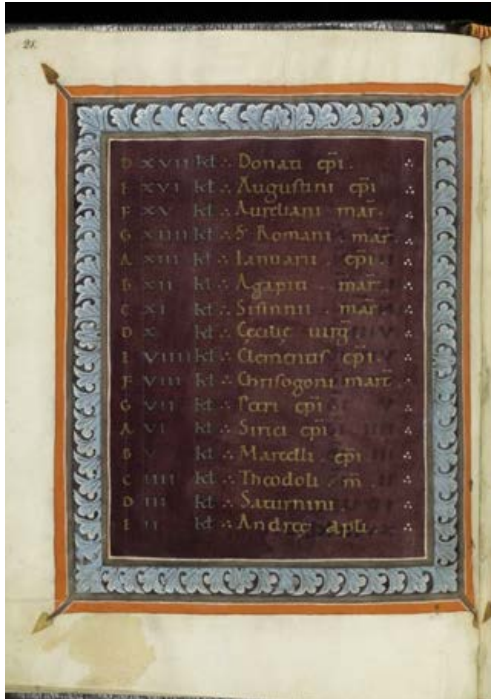 21.
D XVII kł Donati epī
E XVI kł Augustini epī
F XV kł Aureliani mar̄
G XIIII kł S Romani mar̄
A XIII kł Ianuarii epī
B XII kł Agapiti mar̄
C XI kł Sisinnii mar̄
D X kł Cecilię uirḡ
E VIIII kł Clementis epī
F VIII kł Chrisogoni mart̄
G VII kł Petri epī
A VI kł Sirici epī
B V kł Marcelli epī
C IIII kł Theodoli m̄
D III kł Saturnini
E II kł Andreę apłi